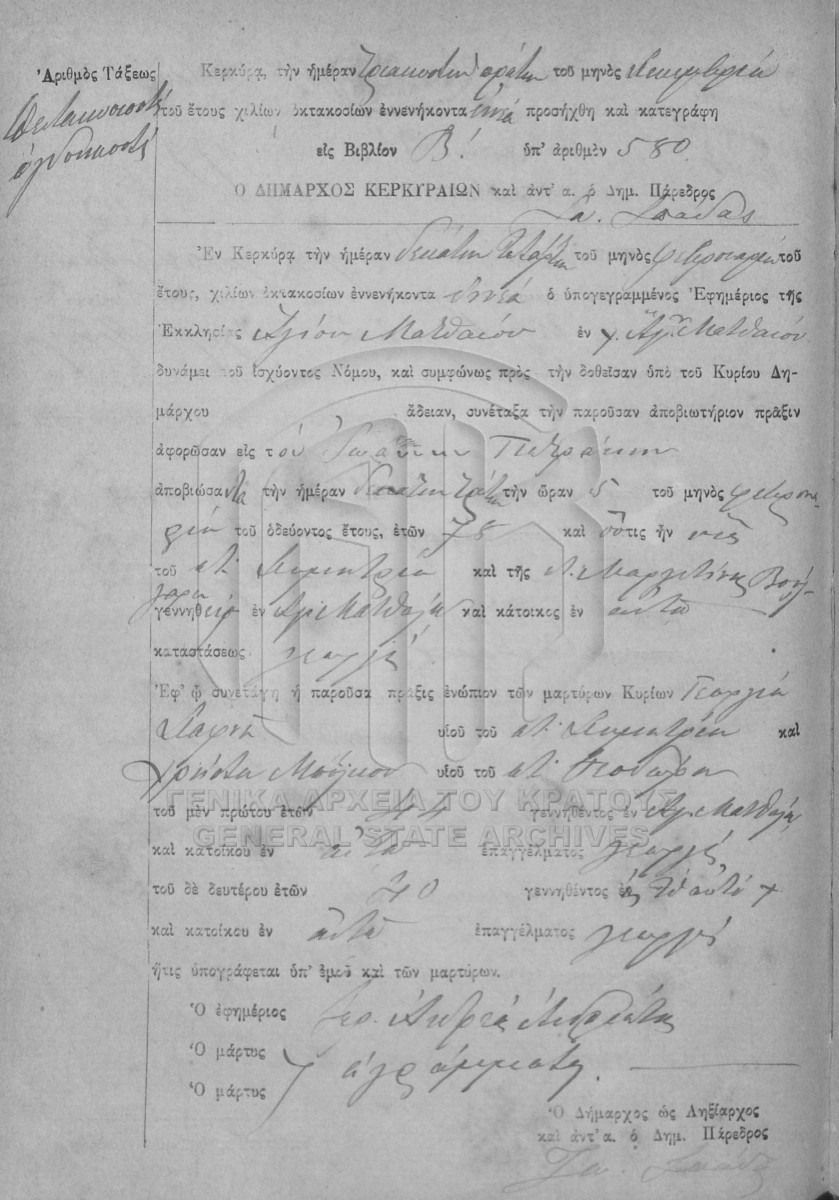 Ἀριθμὸς Τάξεως
Πεντακοσιοστή
ὀγδοηκοστή
Κερκύρᾳ, τὴν ἡμέραν τριακοστὴν πρώτην τοῦ μηνὸς Δεκεμβρίου
τοῦ ἔτους χιλίων ὀκτακοσίων ἐννενήκοντα ἐννέα προσήχθη καὶ κατεγράφη
εἰς Βιβλίον Β! ὑπ' ἀριθμὸν 580
Ο ΔΗΜΑΡΧΟΣ ΚΕΡΚΥΡΑΙΩΝ καὶ ἀντ' α. ὁ Δημ. Πάρεδρος
Ἐν Κερκύρᾳ τὴν ἡμέραν δεκάτην τετάρτην τοῦ μηνὸς Φεβρουαρίου τοῦ
ἔτους, χιλίων ὀκτακοσίων ἐννενήκοντα ἐννέα ὁ ὑπογεγραμμένος Ἐφημέριος τῆς
Ἐκκλησίας Ἁγίου Ματθαίου ἐν χ. Ἁγ. Ματθαίου
δυνάμει τοῦ ἰσχύοντος Νόμου, καὶ συμφώνως πρὸς τὴν δοθεῖσαν ὑπὸ τοῦ Κυρίου Δη-
μάρχου ἄδειαν, συνέταξα τὴν παροῦσαν ἀποβιωτήριον πρᾶξιν
ἀφορῶσαν εἰς τὸν Ἰωάννην Πετράκην
ἀποβιώσαντα τὴν ἡμέραν δεκάτην τρίτην τὴν ὥραν 5 τοῦ μηνὸς Φεβρουα-
ρίου τοῦ ὁδεύοντος ἔτους, ἐτῶν 78 καὶ ὅστις ἦν υἱὸς
τοῦ π. Δημητρίου καὶ τῆς π. Μαργετίνας Βούλ-
γαρη
γεννηθεὶς ἐν Ἁγ. Ματθαίῳ καὶ κάτοικος ἐν αὐτῷ
καταστάσεως γεωργός
Ἐφ' ᾧ συνετάγη ἡ παροῦσα πρᾶξις ἐνώπιον τῶν μαρτύρων Κυρίων Γεωργίου
υἱοῦ τοῦ π. Δημητρίου καὶ
Χρήστου υἱοῦ τοῦ π. Θεοδώρου
ΓΕΝΙΚΑ ΑΡΧΕΙΑ ΤΟΥ ΚΡΑΤΟΥΣ
τοῦ μὲν πρώτου ἐτῶν 44 γεννηθέντος ἐν Ἁγ. Ματθαίῳ
GENERAL STATE ARCHIVES
καὶ κατοίκου ἐν αὐτῷ ἐπαγγέλματος γεωργός
τοῦ δὲ δευτέρου ἐτῶν 40 γεννηθέντος εἰς τὸ αὐτὸ χ
καὶ κατοίκου ἐν αὐτῷ ἐπαγγέλματος γεωργός
ἥτις ὑπογράφεται ὑπ' ἐμοῦ καὶ τῶν μαρτύρων.
Ὁ ἐφημέριος Ἱερ. Ἀνδρέας
Ὁ μάρτυς
ἀγράμματοι.
Ὁ μάρτυς
Ὁ Δήμαρχος ὡς Ληξίαρχος
καὶ ἀντ' α. ὁ Δημ. Πάρεδρος